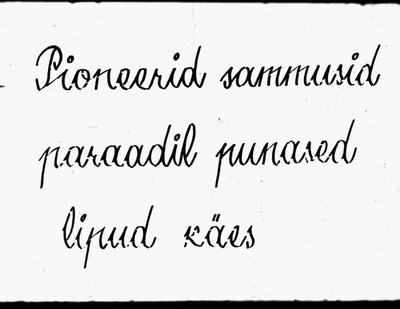 Pioneerid sammusid
paraadil punased
lipud käes